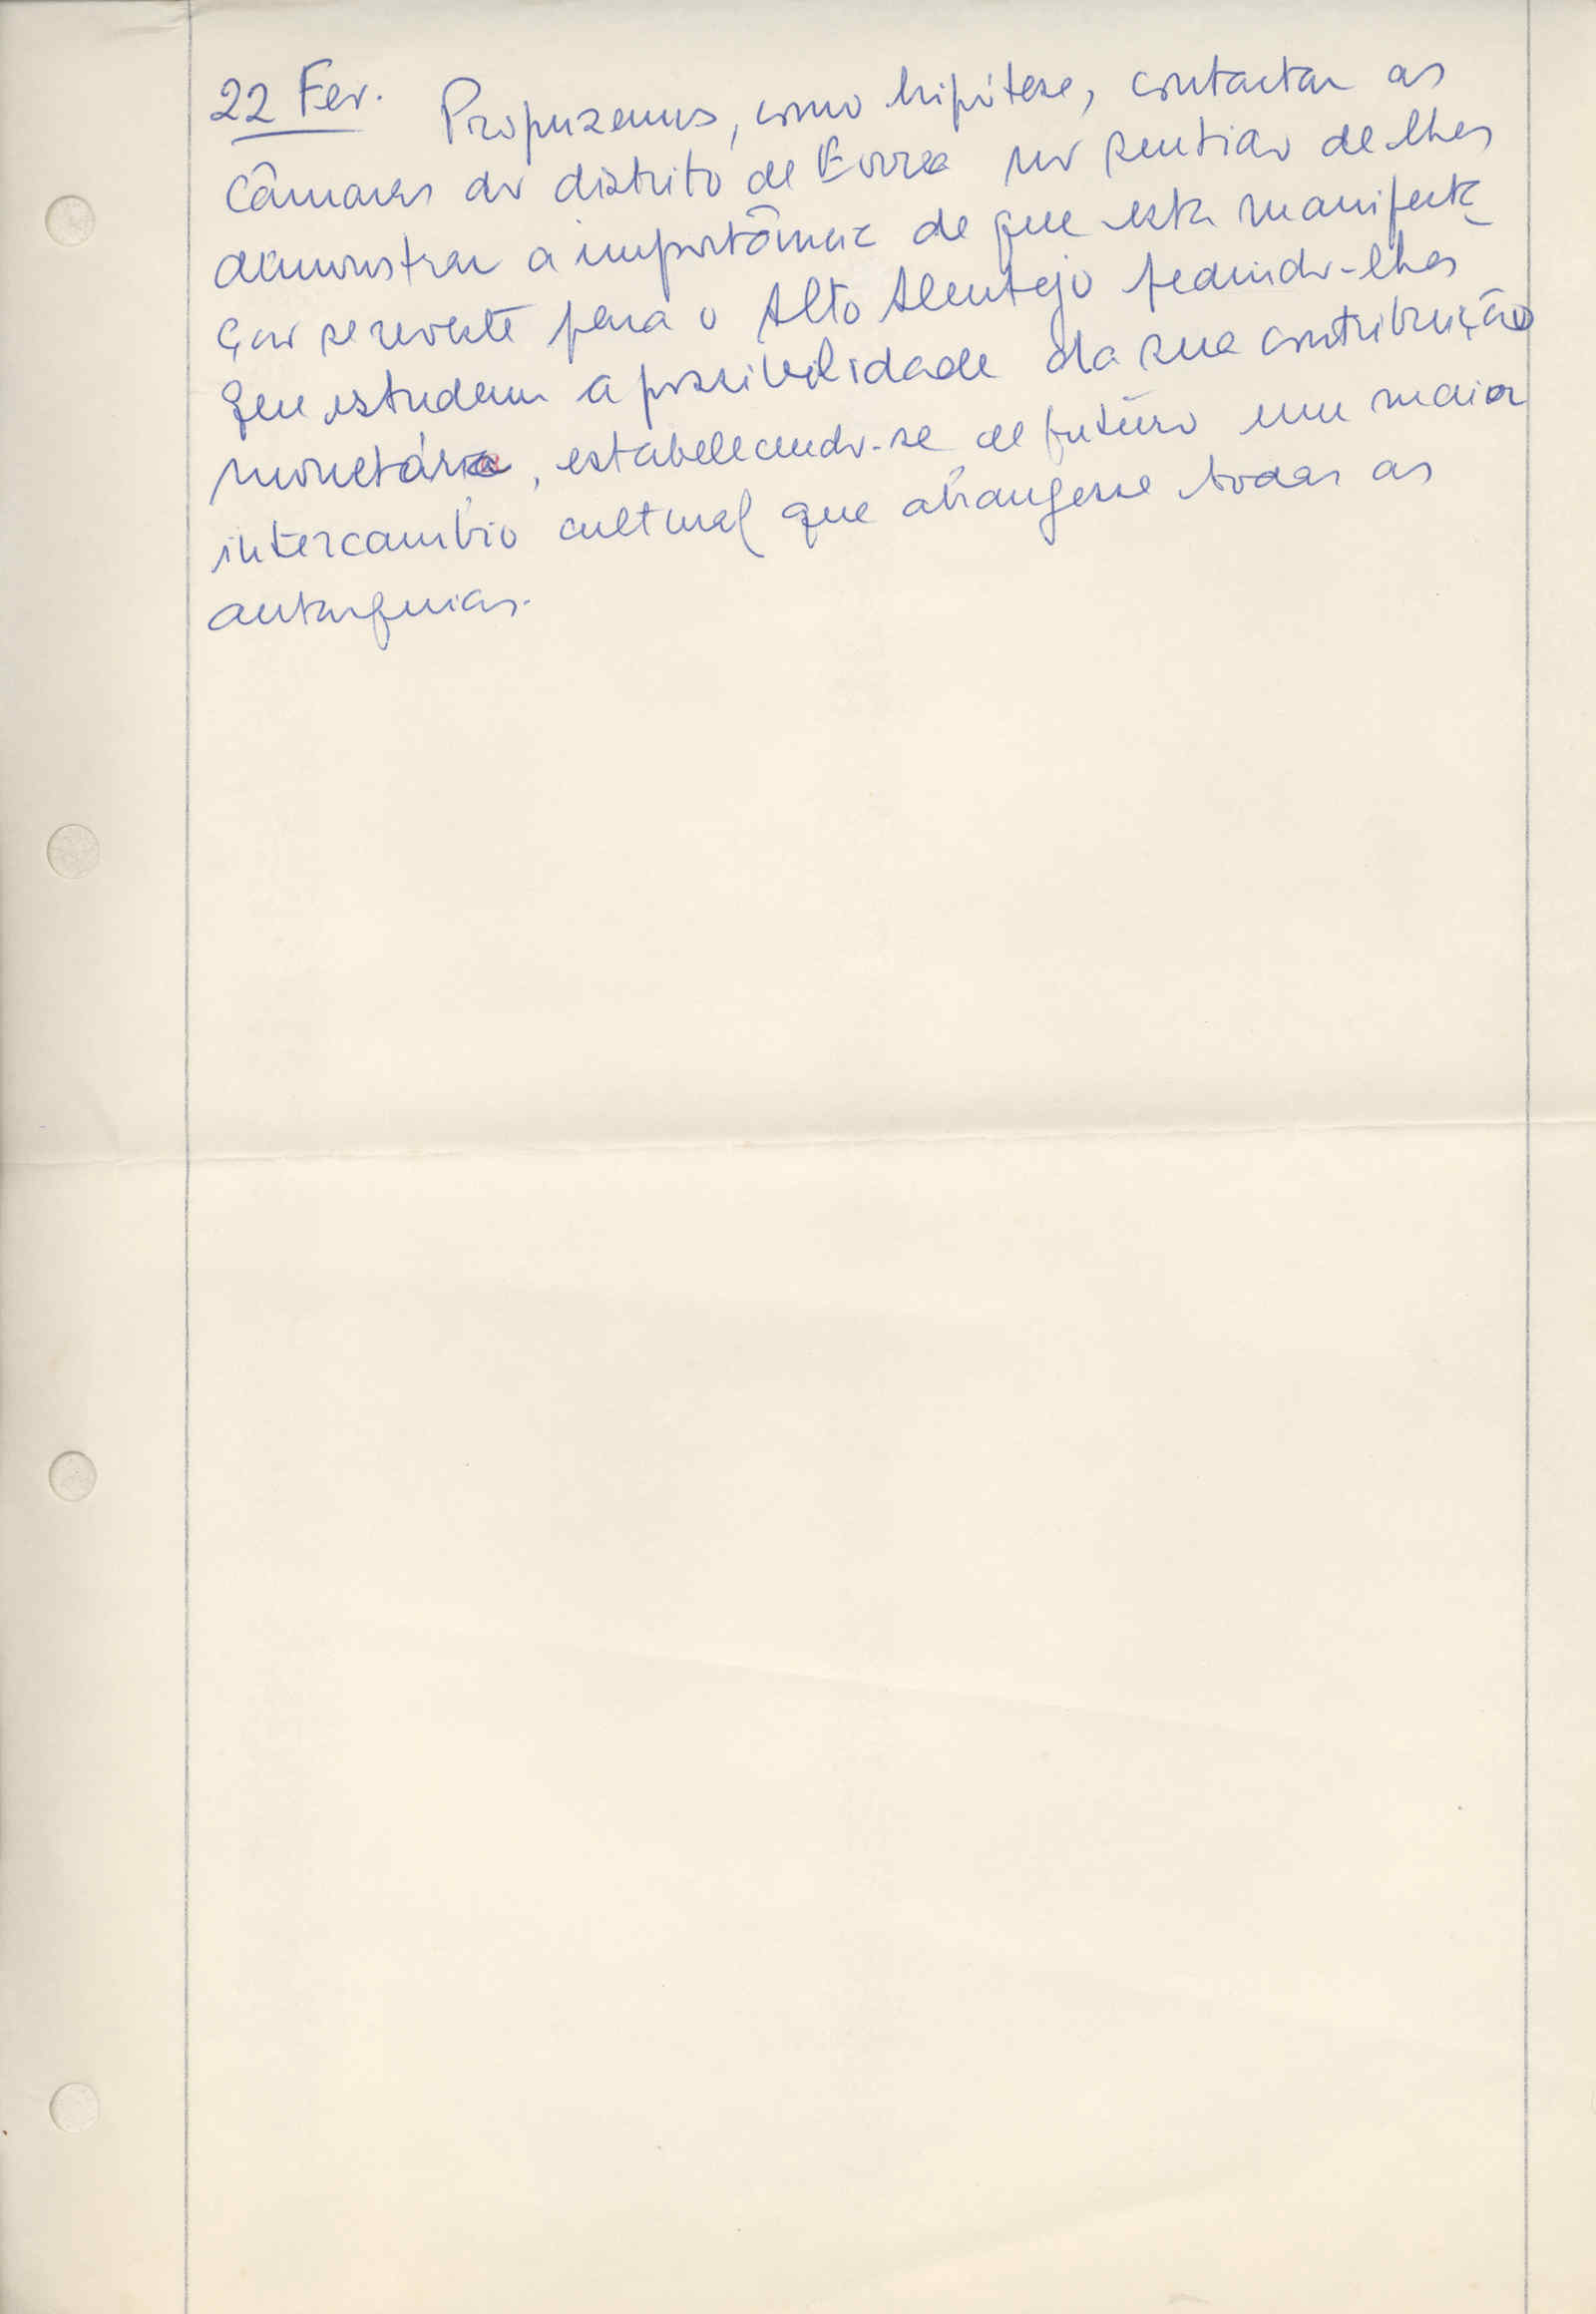 22 Fev. Propuzemos, como hipótese, contactar as
Câmaras do distrito de Évora no sentido de lhes
demonstrar a importância de que esta manifesta
ção se reveste para o Alto Alentejo pedindo-lhes
que estudem a possibilidade da sua contribuição
monetária, estabelecendo-se de futuro um maior
intercambio cultural que abrangesse todas as
autarquias.